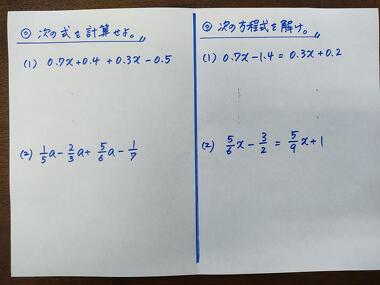 ◎ 次の式を計算せよ。
(1) 0.7x+0.4 +0.3x-0.5
(2) 1/5a-2/3a+5/6a-1/7
◎ 次の方程式を解け。
(1) 0.7x-1.4=0.3x+0.2
(2) 5/6x-3/2=5/9x+1